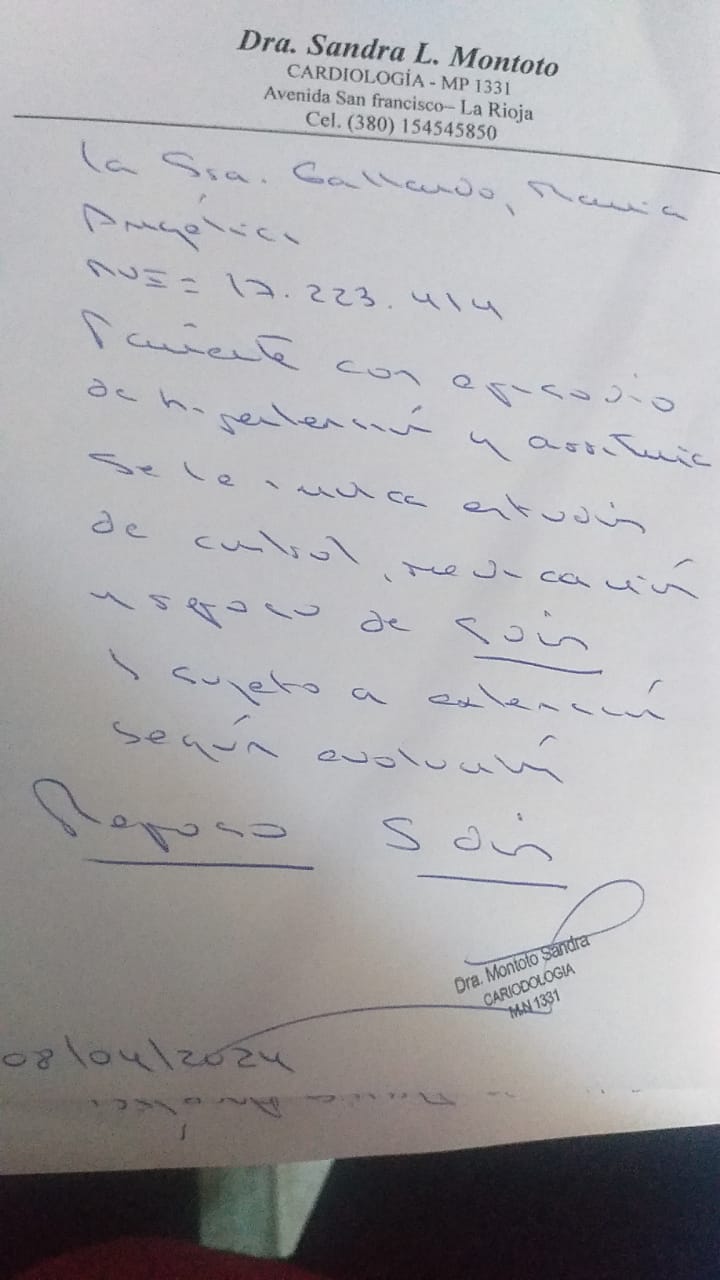 Dra. Sandra L. Montoto
CARDIOLOGÍA - MP 1331
Avenida San francisco– La Rioja
Cel. (380) 154545850
La Sra. Gallardo, Maria
Angélica
DNI= 17.223.414
Paciente con episodio
de hipertensión y arritmia
Se le indica estudios
de control, medicación
y reposo de 5 días
y sujeto a extensión
según evolución
Reposo 5 días
Dra. Montoto Sandra
CARIODOLOGIA
M.N 1331
08/04/2024